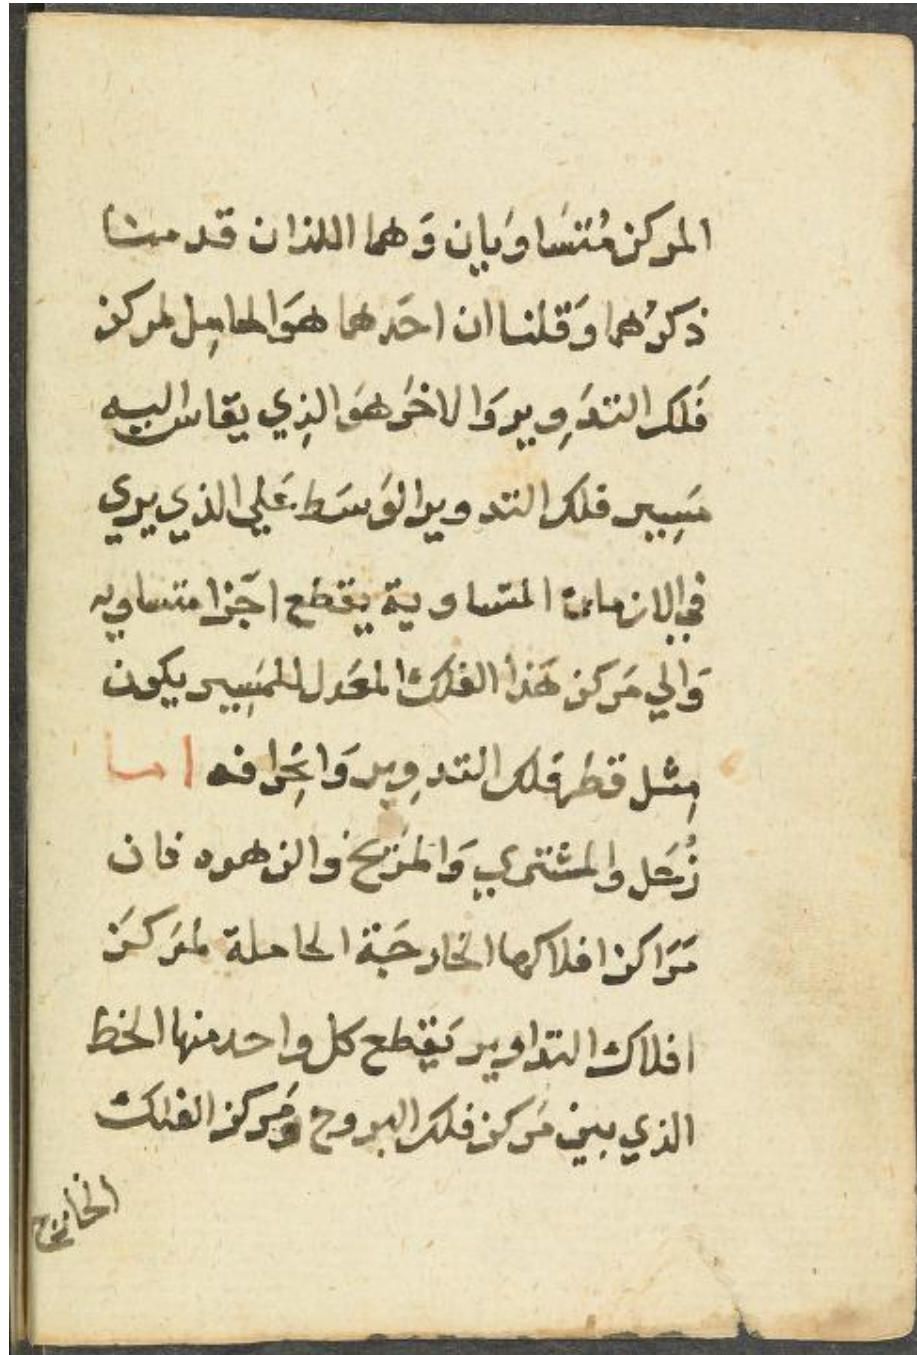 المركز مُتسَاوَيان وَهما اللذان قدمنا
ذكرُهما وَقلنا ان احَدهما هوَ الحامِل لمركز
فَلك التدَوِير وَالاخَر هوَ الذِي يقاس اليه
مَسِير فلك التدوير الوَسَط عَلي الذي يري
في الازمان المتساوية يقطع اجَزا متساويه
وَالي مَركز هَذا الفلك المعَدل للمسِير يكون
مِثل قطر فَلك التدوِير وَانحِرافه اما
زُحَل والمشتري وَالمرَيخ والزهره فان
مَرَاكز افلاكها الخارجَة الحاملة لمرَكَز
افلاك التداوير يَقطع كل واحد منها الخط
الذي بين مَركز فلك البروج ومَركز الفلك
الخارج